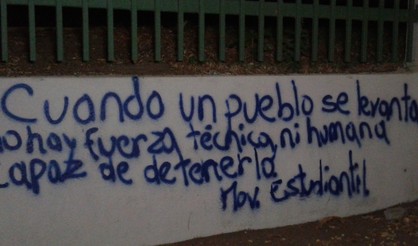 Cuando un pueblo se levanta
no hay fuerza técnica, ni humana
capaz de detenerla
Mov. Estudiantil.